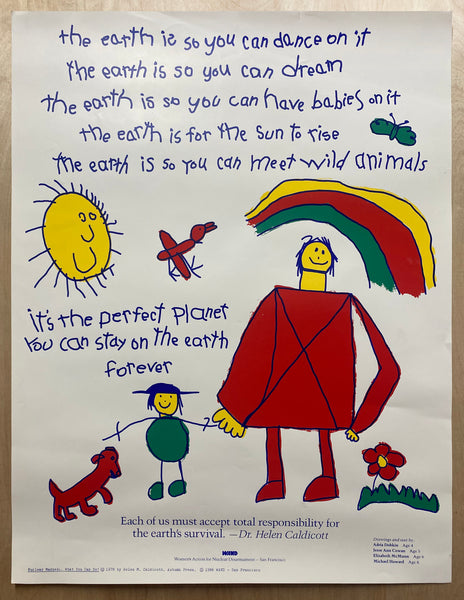 the earth is so you can dance on it
the earth is so you can dream
the earth is so you can have babies on it
the earth is for the sun to rise
the earth is so you can meet wild animals
it's the perfect planet
you can stay on the earth
forever
Each of us must accept total responsibility for
the earth's survival. —Dr. Helen Caldicott
WAND
Women's Action for Nuclear Disarmament – San Francisco
Drawings and text by
Adria Dobkin Age 4
Jesse Ann Cowan Age 5
Elizabeth McMunn Age 6
Michael Howard Age 6
Nuclear Madness, What You Can Do! © 1978 by Helen M. Caldicott, Autumn Press. © 1986 WAND - San Francisco